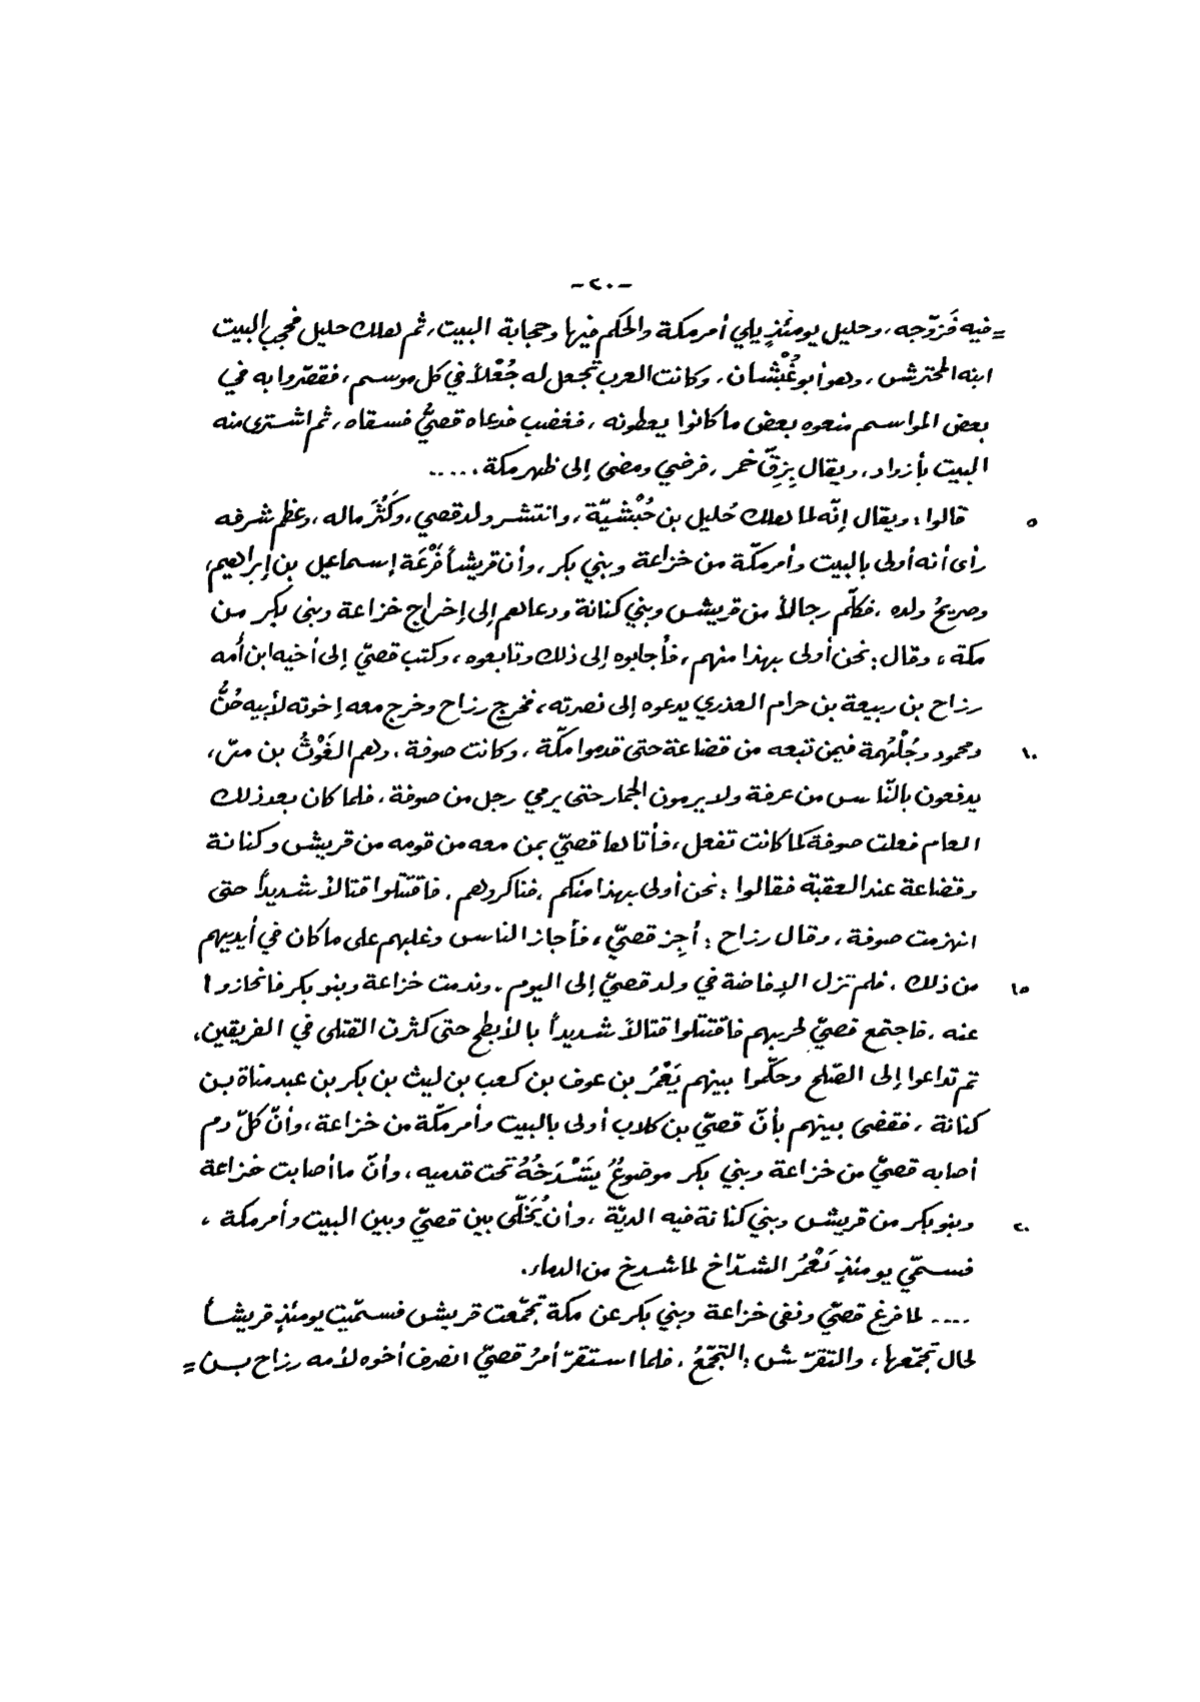 -٢٠-
= فيه فَزَوّجه، وحليل يومئذٍ يلي أمر مكة والحكم فيها وحجابة البيت، ثم هلك حليل فحجب البيت
ابنه المحترش، وهو أبو غُبْشان، وكانت العرب تجعل له جُعْلاً في كل موسم، فقصّروا به في
بعض المواسم منعوه بعض ما كانوا يعطونه، فغضب فدعاه قصيٌّ فسقاه، ثم اشترى منه
البيت بأزواد، ويقال بِزِقّ خمر، فرضي ومضى إلى ظهر مكة.....
٥ قالوا: ويقال إنّه لما هلك حُليل بن حُبْشيّة، وانتشر ولد قصي، وكَثُرَ ماله، وعظم شرفه
رأى أنه أولى بالبيت وأمر مكّة من خزاعة وبني بكر، وأن قريشاً فَرْعَة إسماعيل بن إبراهيم،
وصريحُ ولده، فكلّم رجالاً من قريش وبني كنانة ودعاهم إلى إخراج خزاعة وبنى بكر من
مكة، وقال: نحن أولى بهذا منهم، فأجابوه إلى ذلك وتابعوه، وكتب قصيّ إلى أخيه ابن أُمه
رزاح بن ربيعة بن حرام العذري يدعوه إلى نصرته، فخرج رزاح وخرج معه إخوته لأبيه حُنُّ
١٠ ومحمود وجُلْهُمة فيمن تبعه من قضاعة حتى قدموا مكّة، وكانت صوفة، وهم الغَوْثُ بن مرّ،
يدفعون بالنّاس من عرفة ولا يرمون الجمار حتى يرمي رجل من صوفة، فلما كان بعد ذلك
العام فعلت صوفة كما كانت تفعل، فأتاها قصيّ بمن معه من قومه من قريش وكنانة
وقضاعة عند العقبة فقالوا: نحن أولى بهذا منكم، فناكروهم، فاقتتلوا قتالاً شديداً حتى
انهزمت صوفة، وقال رزاح: أجِز قصيّ، فأجاز الناس وغلبهم على ما كان في أيديهم
١٥ من ذلك، فلم تزل الإفاضة في ولد قصيّ إلى اليوم. وندمت خزاعة وبنو بكر فانحازوا
عنه، فاجتمع قصيّ لحربهم فاقتتلوا قتالاً شديداً بالأبطح حتى كثرت القتلى في الفريقين،
ثم تداعوا إلى الصّلح وحكّموا بينهم يَعْمُرُ بن عوف بن كعب بن ليث بن بكر بن عبد مناة بن
كنانة، فقضى بينهم بأنّ قصيّ بن كلاب أولى بالبيت وأمر مكّة من خزاعة، وأنّ كلّ دم
أصابه قصيّ من خزاعة وبني بكر موضوعٌ يَتَشْدَخُهُ تحت قدميه، وأنّ ما أصابت خزاعة
٢٠ وبنو بكر من قريش وبني كنانة فيه الديّة، وأن يُخَلّى بين قصيّ وبين البيت وأمر مكة،
فسمّي يومئذٍ يَعْمُرُ الشدّاخ لما شدخ من الدماء.
.... لما فرغ قصيّ ونفى خزاعة وبني بكر عن مكة تجمّعت قريش فسمّيت يومئذٍ قريشاً
لحال تجمّعها، والتقرّش: التجمّعُ، فلما استقرّ أمرُ قصيّ انصرف أخوه لأمه رزاح بن =